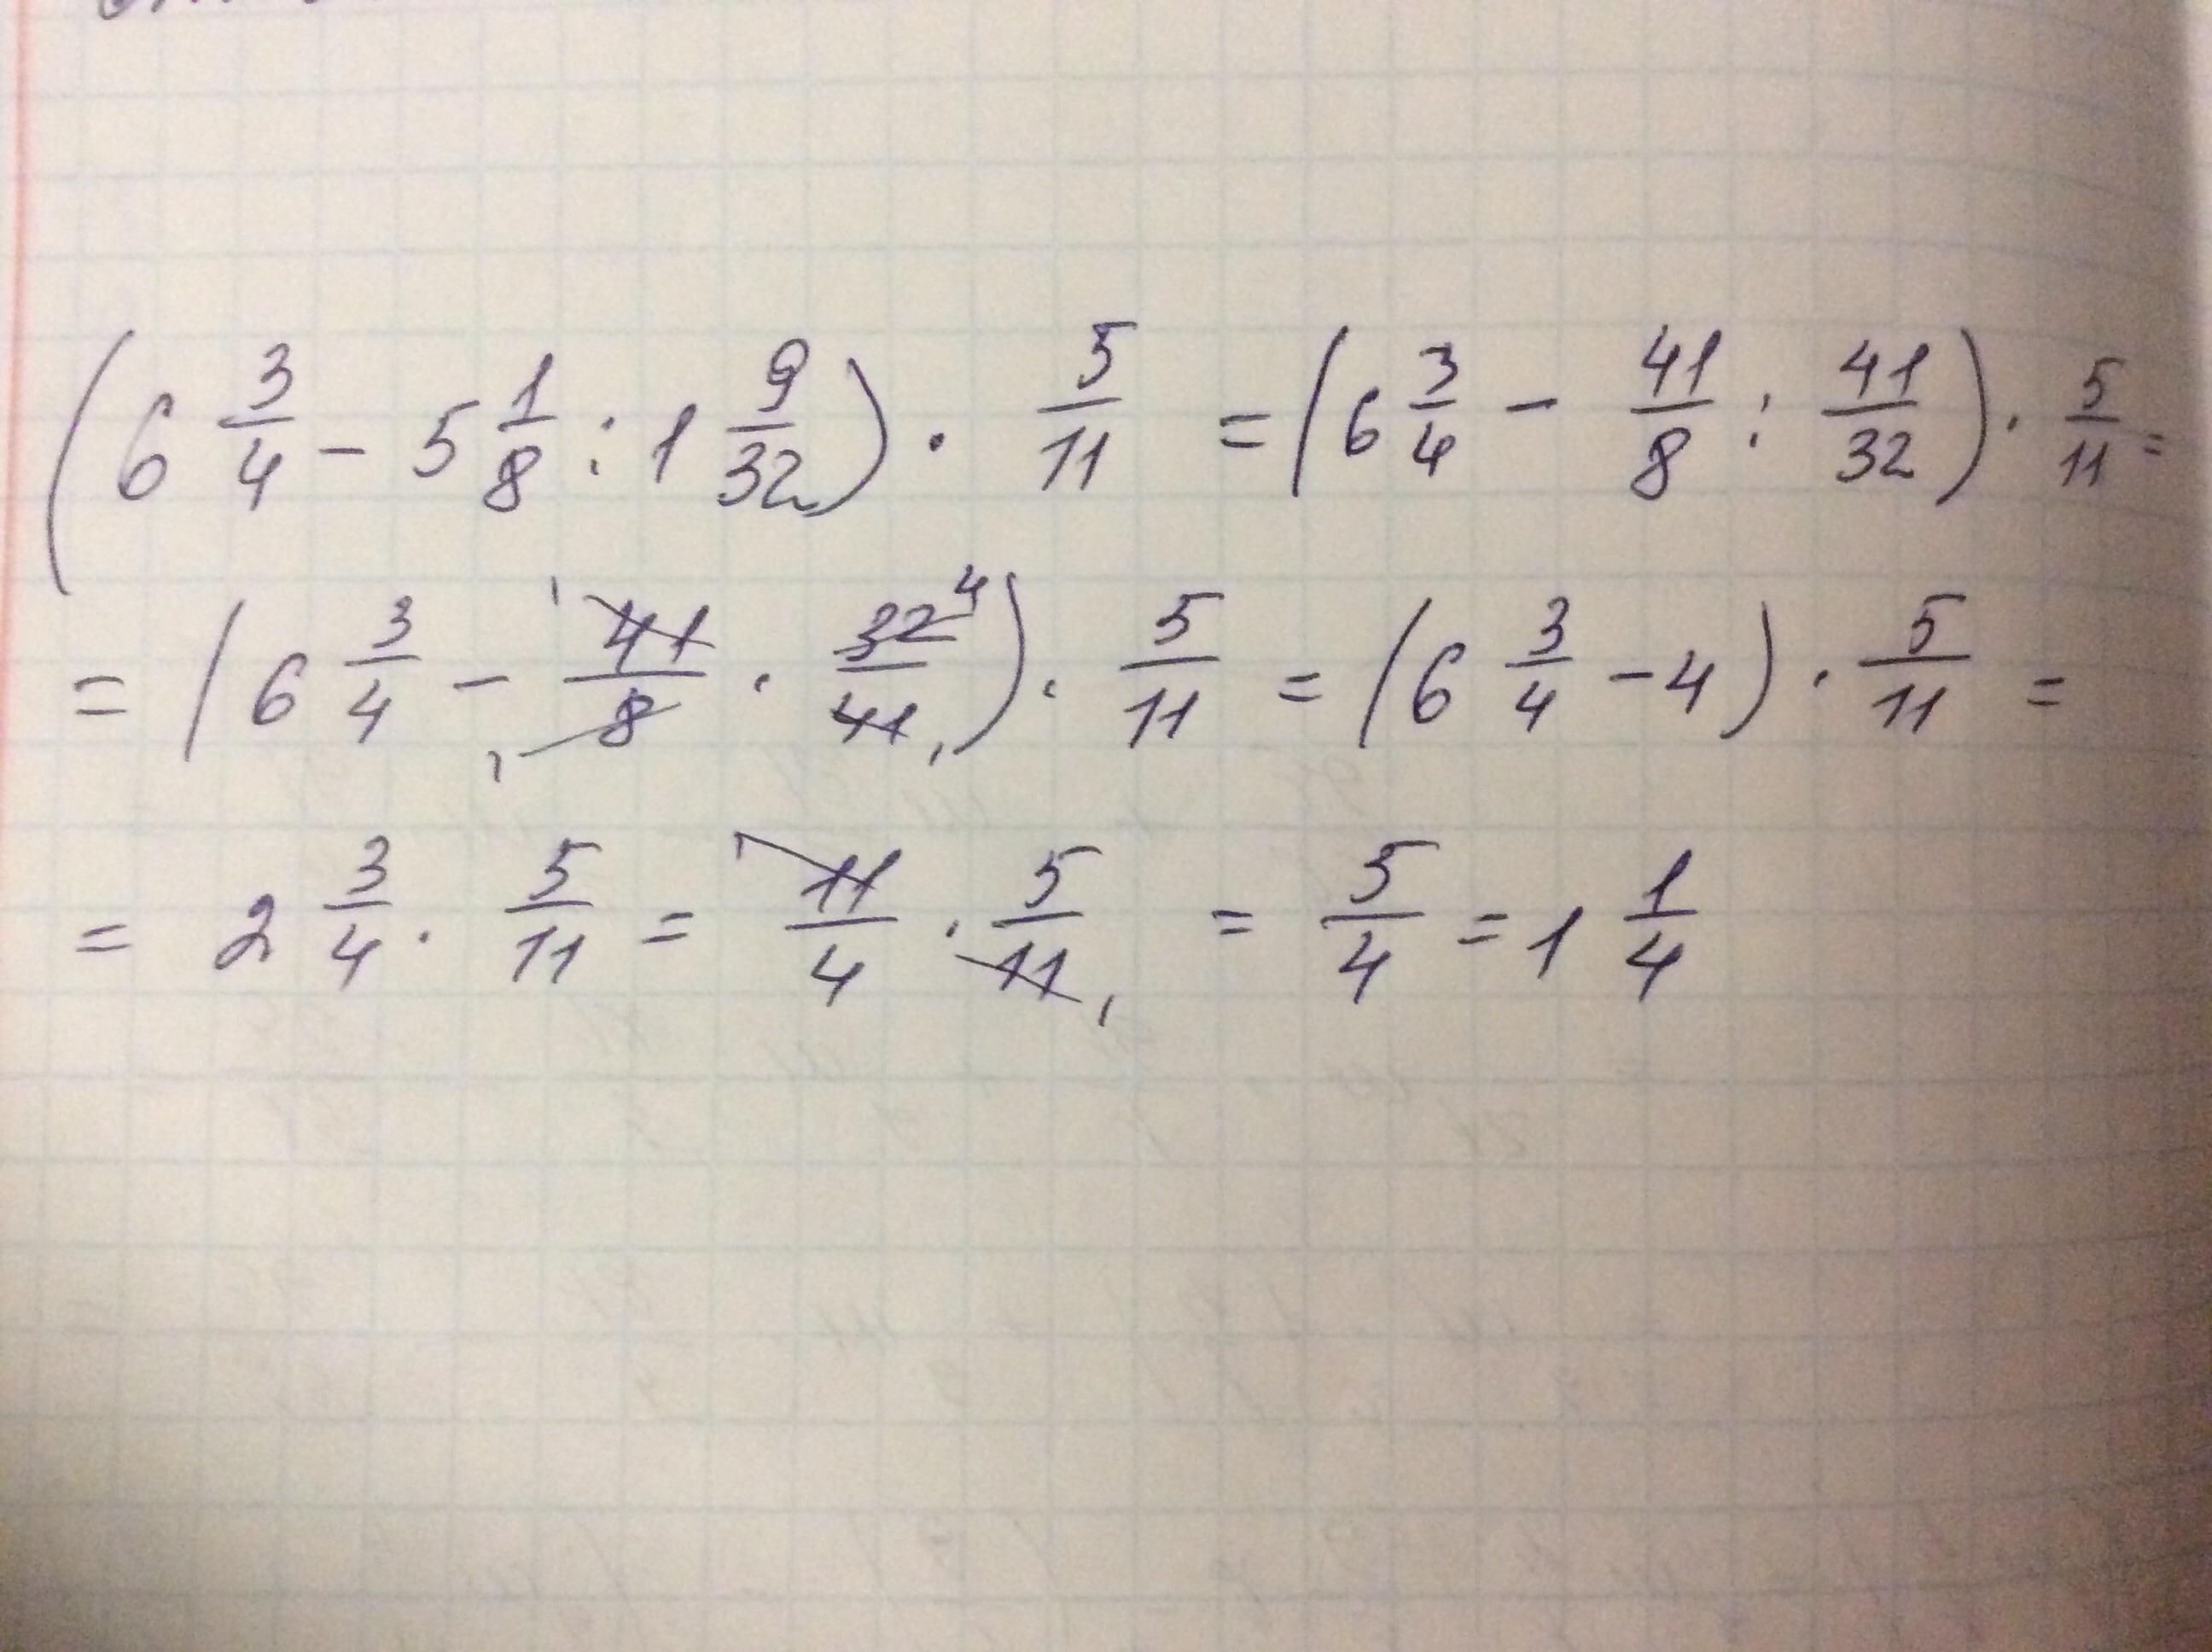 (6 3/4 - 5 1/8 : 1 9/32) · 5/11 = (6 3/4 - 41/8 : 41/32) · 5/11 =
= (6 3/4 - 41/8 · 32/41) · 5/11 = (6 3/4 - 4) · 5/11 =
= 2 3/4 · 5/11 = 11/4 · 5/11 = 5/4 = 1 1/4